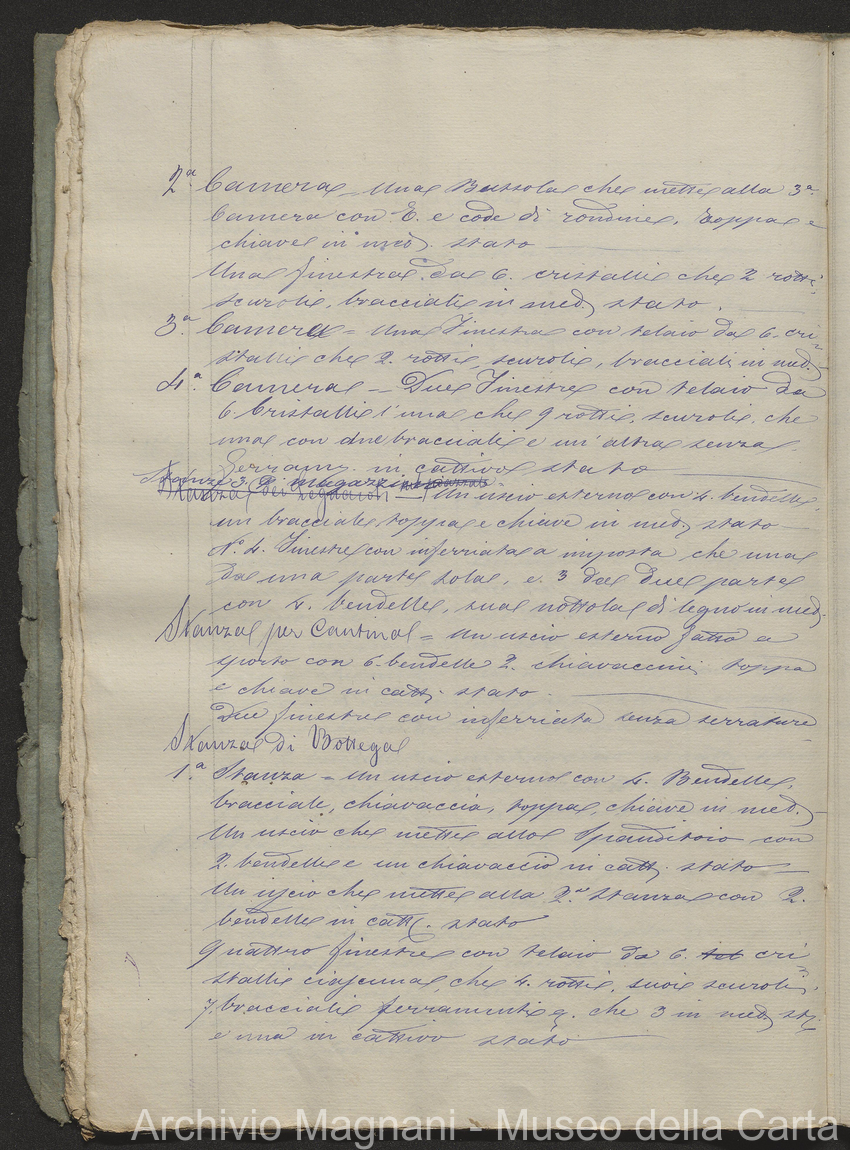 2.a Camera – Una Bussola che mette alla 3.a
Camera con E. e code di rondine, toppa e
chiave in med. stato
Una finestra da 6. cristalli che 2 rotti
scuroli, bracciali in med. stato.
3.a Camera = Una Finestra con telaio da 6. cri-
stalli che 2. rotti, scuroli, bracciali in med.
4.a Camera – Due Finestre con telaio da
6. Cristalli l'una che 9 rotti, scuroli, che
una con due bracciali e un'altra senza
Serram. in cattivo stato
Stanze 3. di magazzino
Stanza dei Legnaioli – Un uscio esterno con 4. bendelle,
un bracciale toppa e chiave in med. stato
N.o 4. Finestre con inferriata a imposta che una
da una parte sola, e 3 da due parte
con 4. bendelle, sua nottola di legno in med.
Stanza per Cantina = Un uscio esterno fatto a
sporto con 6. bendelle 2. chiavaccini toppa
e chiave in catt. stato.
Due finestre con inferriata senza serrature
Stanza di Bottega
1.a Stanza = Un uscio esterno con 4. Bendelle,
bracciale, chiavaccia, toppa, chiave in med.
Un uscio che mette allo Spanditoio con
2. bendelle e un chiavaccio in catt. stato
Un uscio che mette alla 2.a stanza con 2.
bendelle in catt. stato
Quattro finestre con telaio da 6. cri
stalli ciascuna, che 4. rotti, suoi scuroli,
7 bracciali ferramenti 9. che 3 in med. st.
e una in cattivo stato
Archivio Magnani - Museo della Carta